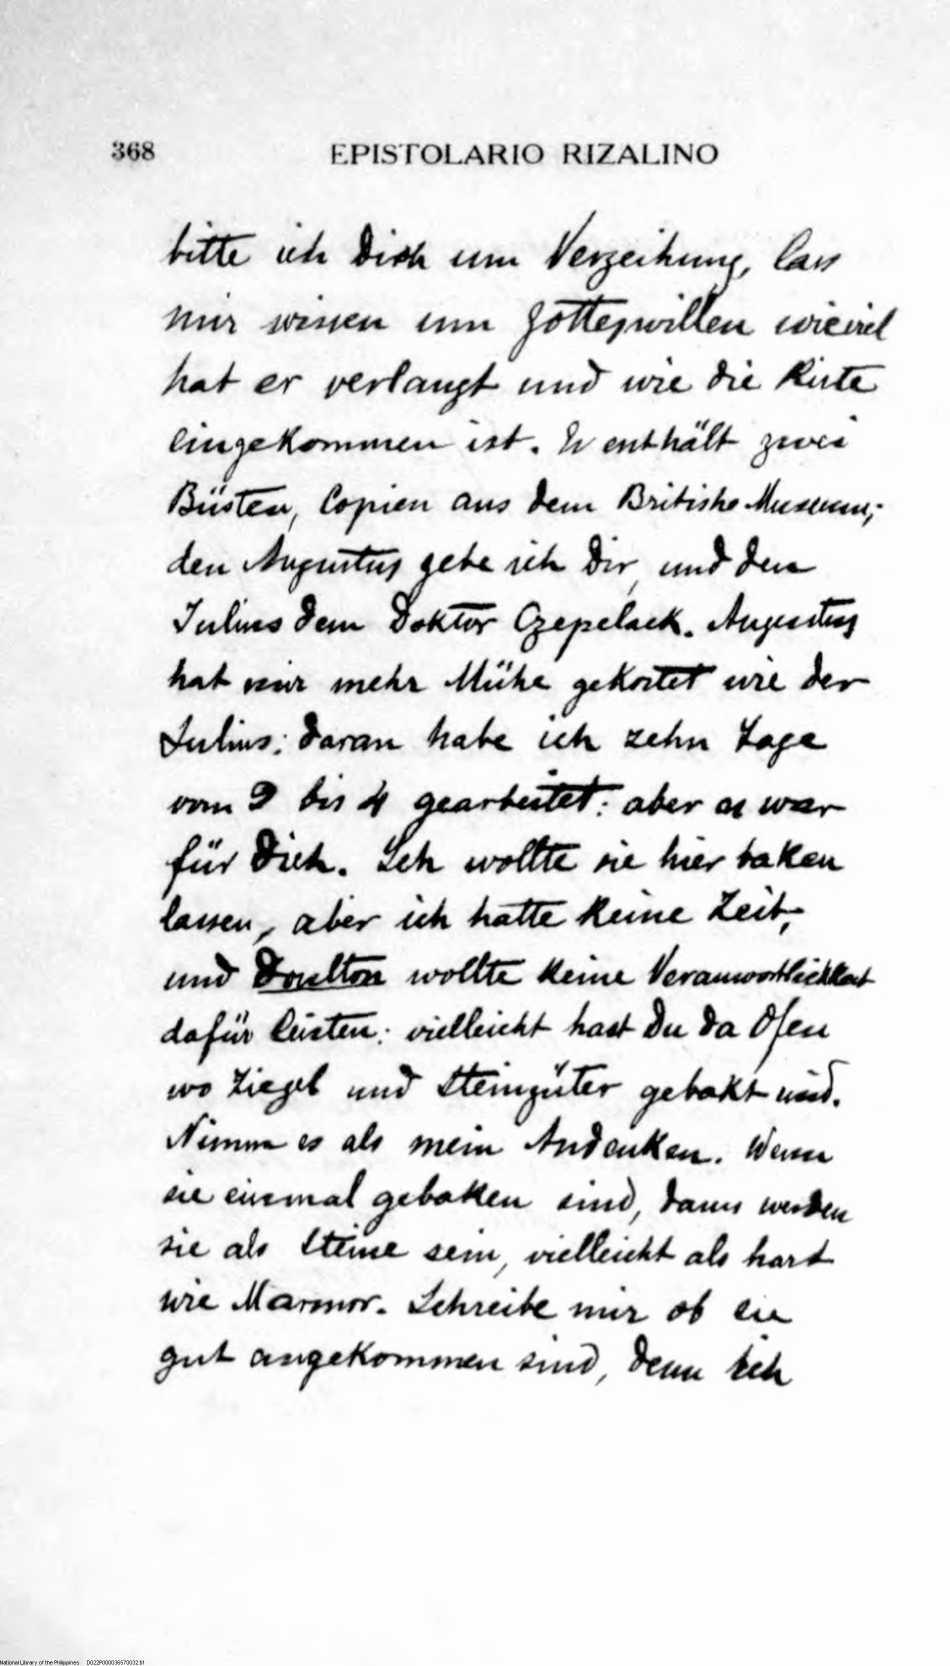 368 EPISTOLARIO RIZALINO
bitte ich Dich um Verzeihung, lass
mir wissen um Gotteswillen wieviel
hat er verlangt und wie die Kiste
eingekommen ist. Er enthält zwei
Büsten, Copien aus dem Britishe Museum;
den Augustus gebe ich Dir, und den
Julius dem Doktor Czepelack. Augustus
hat mir mehr Mühe gekostet wie der
Julius: daran habe ich zehn Tage
vom 9 bis 4 gearbeitet: aber es war
für Dich. Ich wollte sie hier baken
lassen, aber ich hatte keine Zeit,
und Doulton wollte keine Verantwortlichkeit
dafür leisten: vielleicht hast Du da Ofen
wo Ziegel und Steingüter gebakt wird.
Nimm es als mein Andenken. Wenn
sie einmal gebaken sind, dann werden
sie als Steine sein, vielleicht als hart
wie Marmor. Schreibe mir ob sie
gut angekommen sind, denn ich
National Library of the Philippines